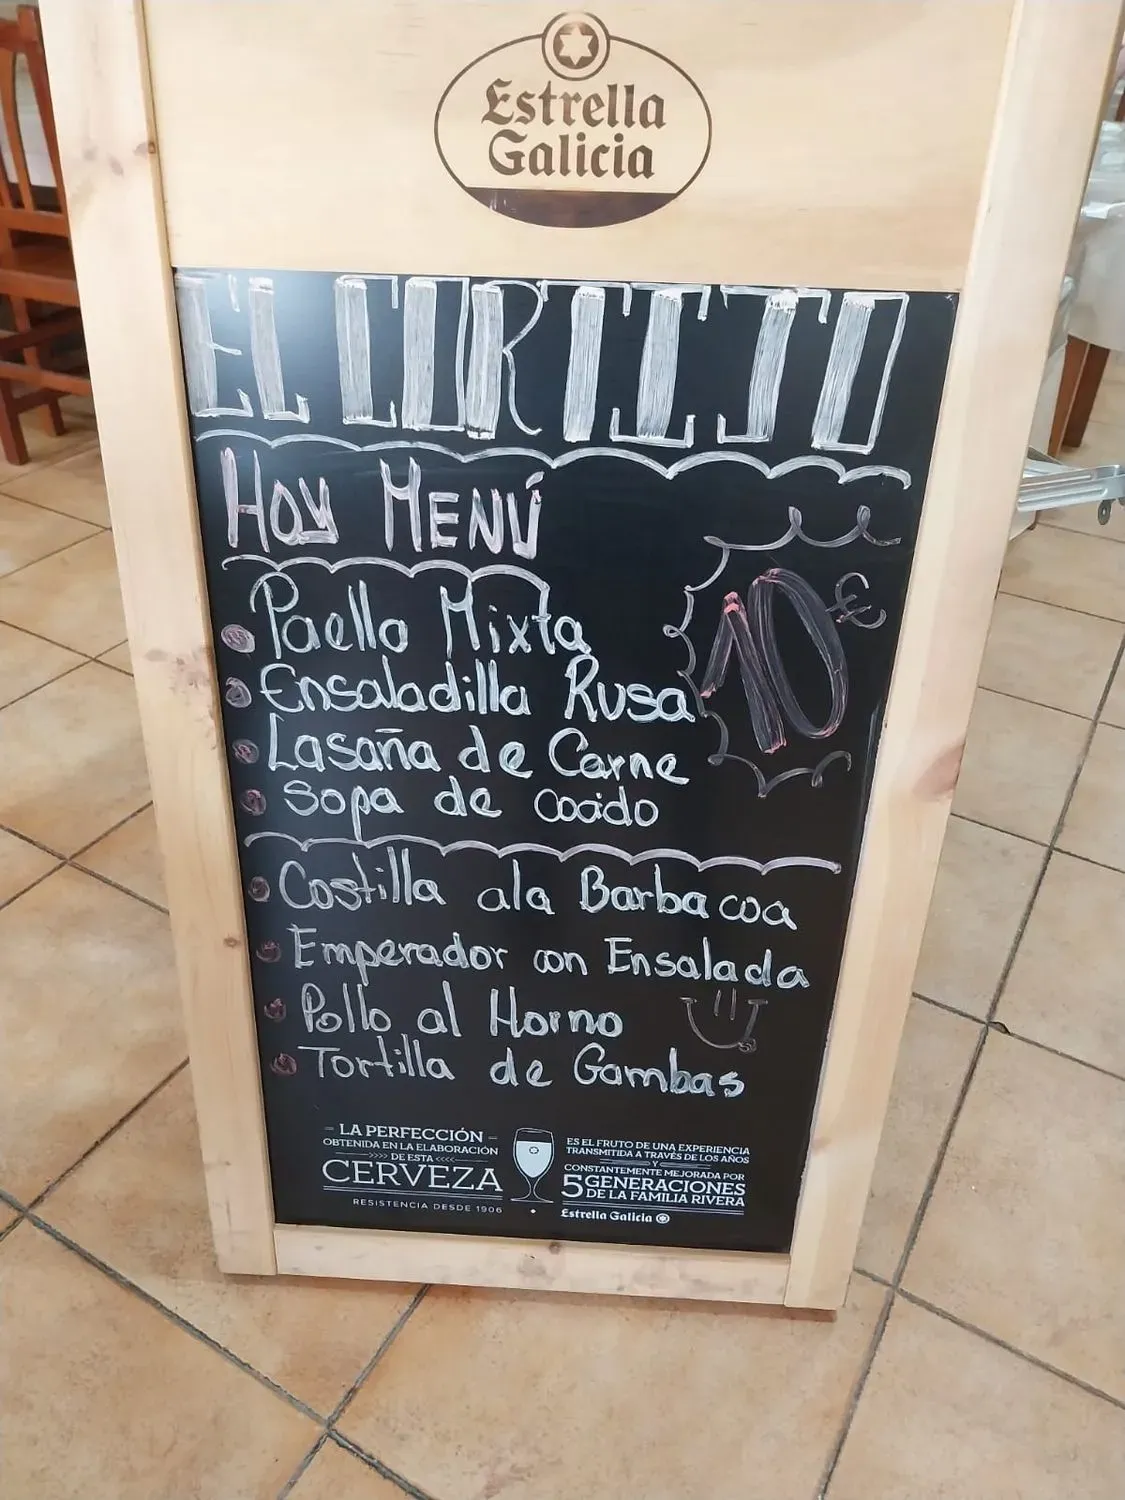 Estrella
Galicia
EL CORTIJO
HOY MENÚ
Paella Mixta
10€
Ensaladilla Rusa
Lasaña de Carne
Sopa de Cocido
Costilla ala Barbacoa
Emperador con Ensalada
Pollo al Horno
Tortilla de Gambas
- LA PERFECCIÓN -
OBTENIDA EN LA ELABORACIÓN
>>>> DE ESTA <<<<
CERVEZA
RESISTENCIA DESDE 1906
ES EL FRUTO DE UNA EXPERIENCIA
TRANSMITIDA A TRAVÉS DE LOS AÑOS
Y
CONSTANTEMENTE MEJORADA POR
5 GENERACIONES
DE LA FAMILIA RIVERA
Estrella Galicia